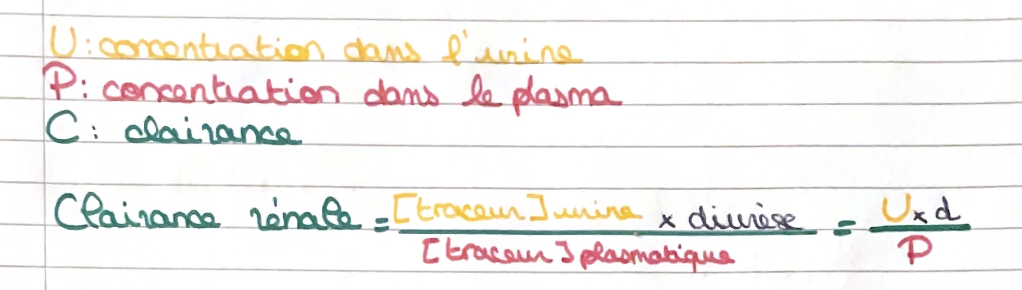 U : concentration dans l'urine
P : concentration dans le plasma
C : clairance
Clairance rénale = [traceur] urine x diurèse / [traceur] plasmatique = U x d / P